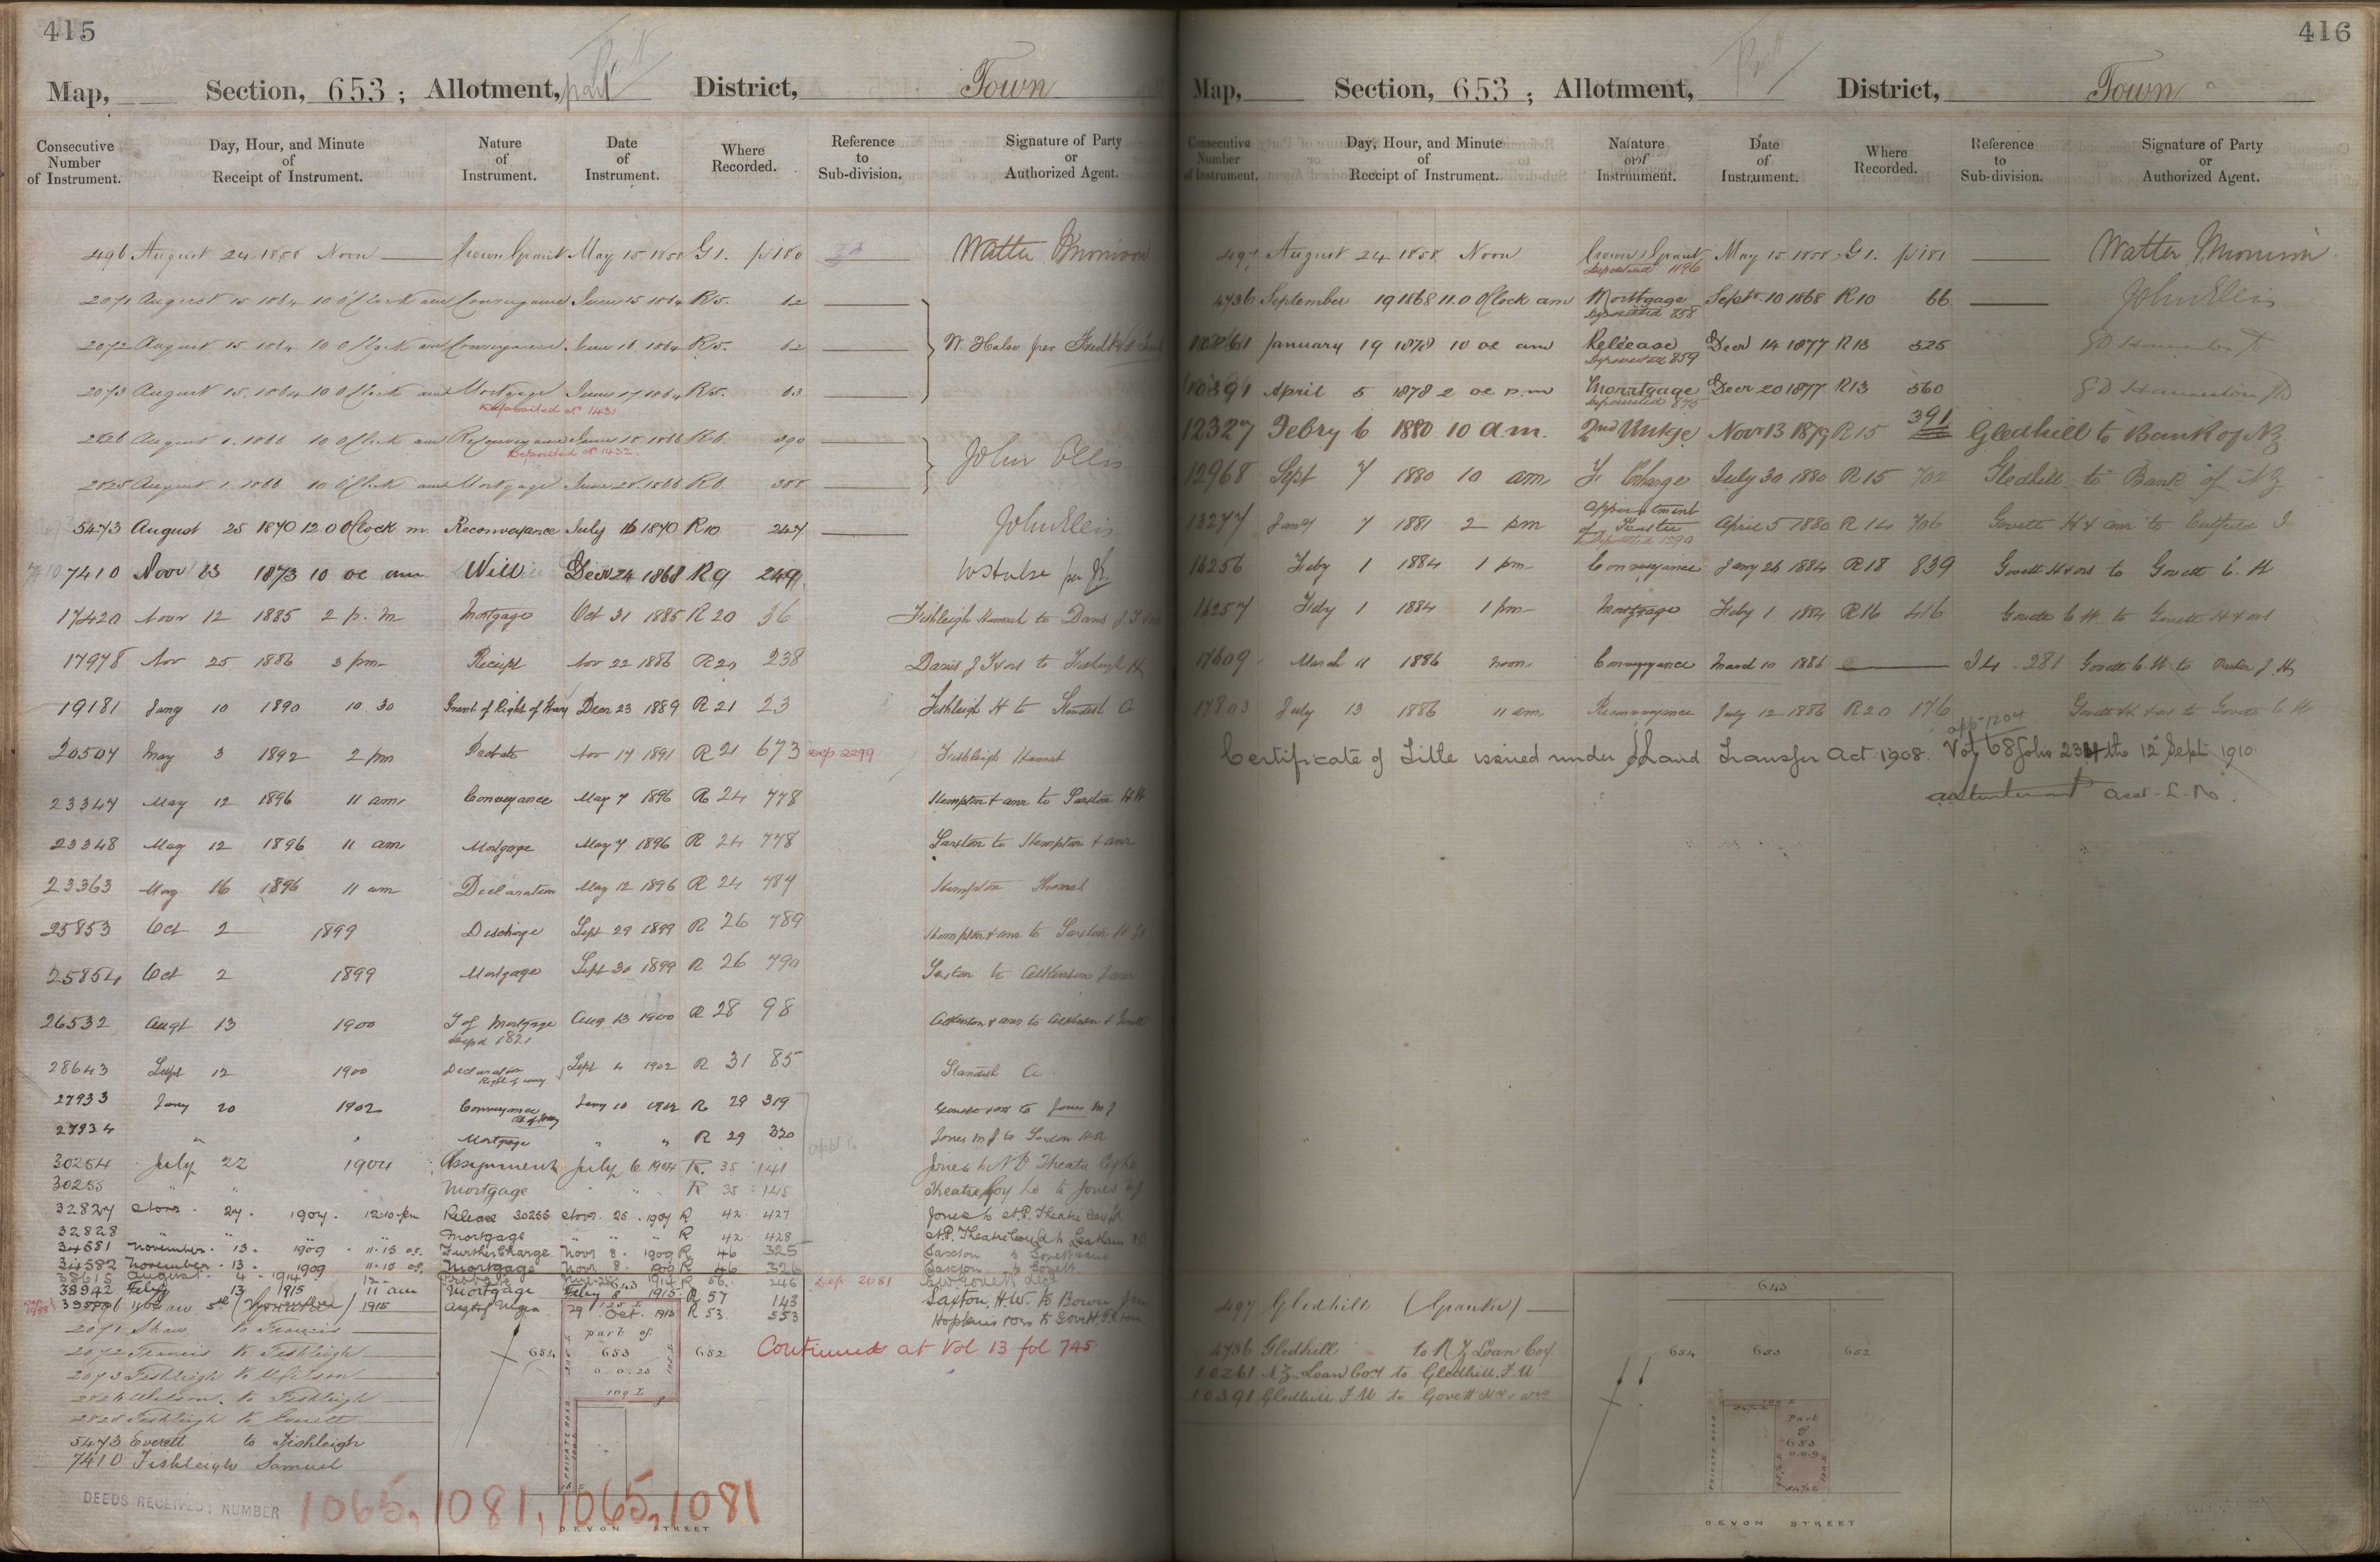 415
Map, Section, 653; Allotment, part District, Town
Consecutive Number of Instrument. Day, Hour, and Minute of Receipt of Instrument. Nature of Instrument. Date of Instrument. Where Recorded. Reference to Sub-division. Signature of Party or Authorized Agent.
496 August 24 1858 Noon Crown Grant May 15 1858 G 1. p 180 Walter Morrison
2071 August 15 1864 10 O'Clock am Conveyance June 15 1864 R5. 62
2072 August 15 1864 10 O'Clock am Conveyance June 16 1864 R5. 62 W. Halse per
2073 August 15 1864 10 O'Clock am Mortgage June 17 1864 R5. 63
Deposited No 1431
2826 August 1. 1866 10 O'Clock am Reconveyance June 15 1866 R6. 390
Deposited No 1432.
John Ellis
2825 August 1. 1866 10 O'Clock am Mortgage June 28. 1866 R6. 388
5473 August 25 1870 12.0 O'Clock m Reconveyance July 16 1870 R10 247 John Ellis
7410 Novr 23 1873 10 oc am Will Decr 24 1868 R9 249 W Halse per
17420 Novr 12 1885 2 p.m Mortgage Oct 31 1885 R 20 36 Fishleigh Hannah to Davis J.
17978 Nov 25 1886 3 pm Receipt Nov 22 1886 R20 238 Davis J & ors to Fishleigh H
19181 Jany 10 1890 10.30 Grant of Right of Way Decr 23 1889 R 21 23 Fishleigh H to Standish A
20504 May 3 1892 2 pm Probate Nov 17 1891 R 21 673 Dep 2299 Fishleigh Hannah
23347 May 12 1896 11 am Conveyance May 7 1896 R 24 778 Hempton & anr to Saxton H W
23348 May 12 1896 11 am Mortgage May 7 1896 R 24 778 Saxton to Hempton & anr
23363 May 16 1896 11 am Declaration May 12 1896 R 24 784 Hempton Thomas
25853 Oct 2 1899 Discharge Sept 29 1899 R 26 789 Hempton & anr to Saxton H W
25854 Oct 2 1899 Mortgage Sept 30 1899 R 26 790 Saxton to Atkinson & anr
26532 Augt 13 1900 T of Mortgage Aug 13 1900 R 28 98 Atkinson & anr to Atkinson & Govett
Depd 1821
28643 Sept 12 1900 Declaration Right of way Sept 4 1902 R 31 85 Standish A
27933 Jany 20 1902 Conveyance Rt of Way Jany 10 1902 R 29 319 to Jones M J
27934 " " Mortgage " " R 29 320 Jones M J to Saxton H W
30254 July 22 1904 Assignment July 6 1904 R. 35 141 Jones to N P Theatre Coy Ld
30255 " " Mortgage " " R 35 145 Theatre Coy Ld to Jones M J
32827 Novr. 27. 1907. 12.10 pm Release 30255 Novr. 25. 1907 R 42. 427 Jones to N.P. Theatre Coy Ld
32828 " " Mortgage " " R 42 428 N.P. Theatre Coy Ld to
34581 November. 13. 1909. 11.15 oc. Further Charge Novr 8. 1909 R 46 325 Saxton to Govett &
34582 November. 13. 1909 11.15 oc. Mortgage Novr 8. 1909 R 46 326 Saxton to Govett
38615 August. 4. 1914 12 Probate 1914 R 56. 246 Dep 2081
38942 Feby 13 1915 11 am Mortgage Feby 8 1915. R 57 143 Saxton, H.W. to
1915 29 Oct. 1913 R 53. 553 Hopkins
2071 Shaw to Francis
2072 Francis to Fishleigh
2073 Fishleigh to Wilson
2826 Wilson to Fishleigh
2825 Fishleigh to Everett
5473 Everett to Fishleigh
7410 Fishleigh Samuel
643
125 L
part of
654 653 652
0.0.23
109 L
PRIVATE ROAD
DEVON STREET
Continued at Vol 13 fol 745
DEEDS RECEIVED: NUMBER 1065, 1081, 1065, 1081
416
Map, Section, 653; Allotment, District, Town
Consecutive Number of Instrument. Day, Hour, and Minute of Receipt of Instrument. Nature of Instrument. Date of Instrument. Where Recorded. Reference to Sub-division. Signature of Party or Authorized Agent.
497 August 24 1858 Noon Crown Grant May 15 1858 G 1. p 181 Walter Morrison
Deposited 1196
4736 September 19 1868 11.0 O'Clock am Mortgage Septr 10 1868 R10 66 John Ellis
Deposited 858
10261 January 19 1878 10 oc am Release Decr 14 1877 R13 525
Deposited 859
10391 April 5 1878 2 oc p.m Mortgage Decr 20 1877 R13 560
Deposited 875
12327 Febry 6 1880 10 a.m. 2nd Mtge Novr 13 1879 R15 391 Gledhill to Bank of NZ
12968 Sept 7 1880 10 am F Charge July 30 1880 R 15 702 Gledhill to Bank of NZ
13277 Jany 7 1881 2 pm Appointment of Trustee April 5 1880 R 14 706 Govett H & anr to
Deposited 1290
16256 Feby 1 1884 1 pm Conveyance Jany 26 1884 R18 839 Govett H & ors to Govett C. H
16257 Feby 1 1884 1 pm Mortgage Feby 1 1884 R16 416 Govett C H. to Govett H & ors
17609 March 11 1886 noon Conveyance March 10 1886 I4. 281 Govett C. H to J. H
17803 July 13 1886 11 am Reconveyance July 12 1886 R20 176 Govett H & ors to Govett C H
app 1204
Certificate of Title issued under Land Transfer Act 1908. Vol 68 folio 234 the 12 Sept 1910.
Asst. L. R.
497 Gledhill (Grantee)
4736 Gledhill to N Z Loan Coy
10261 N.Z. Loan Coy to Gledhill. F W
10391 Gledhill F W to Govett H & ano
643
654 653 652
Part of 653
0.0.9
PRIVATE ROAD
DEVON STREET